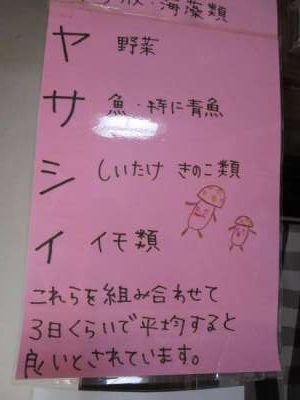 ・海藻類
ヤ 野菜
サ 魚・特に青魚
シ しいたけ きのこ類
イ イモ類
これらを組み合わせて
3日くらいで平均すると
良いとされています。